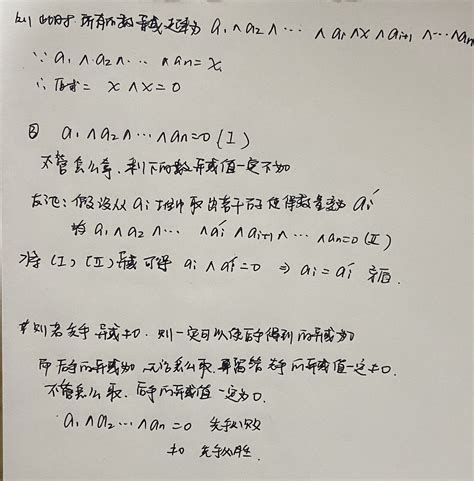 时 所有的数异或起来为 a₁ ∧ a₂ ∧ ⋯ ∧ aᵢ ∧ x ∧ aᵢ₊₁ ∧ ⋯ ∧ aₙ
∵ a₁ ∧ a₂ ∧ ⋯ ∧ aₙ = x
∴ 原式 = x ∧ x = 0
② a₁ ∧ a₂ ∧ ⋯ ∧ aₙ = 0 (I)
不管怎么拿,剩下的数异或值一定不为0
反证:假设从 aᵢ 堆中取出若干 使得数量变为 aᵢ′
a₁ ∧ a₂ ∧ ⋯ ∧ aᵢ′ ∧ aᵢ₊₁ ∧ ⋯ ∧ aₙ = 0 (II)
将 (I) (II) 异或 可得 aᵢ ∧ aᵢ′ = 0 ⇒ aᵢ = aᵢ′ 矛盾.
先手 异或≠0. 则一定可以使后手得到的异或为0
即后手的异或为0 无论怎么取, 留给先手的异或值一定≠0.
不管怎么取, 后手的异或值一定为0.
a₁ ∧ a₂ ⋯ ∧ aₙ = 0 先手必败
≠0 先手必胜.